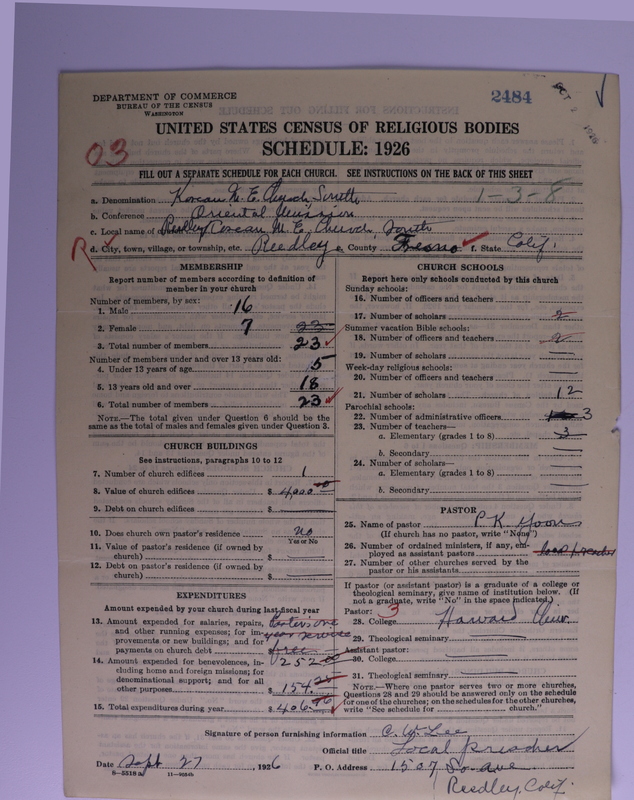 DEPARTMENT OF COMMERCE
BUREAU OF THE CENSUS
WASHINGTON
2484
OCT 2 1926
UNITED STATES CENSUS OF RELIGIOUS BODIES
SCHEDULE: 1926
03
FILL OUT A SEPARATE SCHEDULE FOR EACH CHURCH. SEE INSTRUCTIONS ON THE BACK OF THIS SHEET
a. Denomination Korean M. E. Church, South 1-3-8
b. Conference Oriental Mission
c. Local name of church Reedley Corean M. E. Church, South
R d. City, town, village, or township, etc. Reedley e. County Fresno f. State Calif.
MEMBERSHIP
Report number of members according to definition of member in your church
Number of members, by sex:
1. Male 16
2. Female 7 23
3. Total number of members 23
Number of members under and over 13 years old:
4. Under 13 years of age 5
5. 13 years old and over 18
6. Total number of members 23
NOTE.—The total given under Question 6 should be the same as the total of males and females given under Question 3.
CHURCH BUILDINGS
See instructions, paragraphs 10 to 12
7. Number of church edifices 1
8. Value of church edifices $ 4,000.00
9. Debt on church edifices $
10. Does church own pastor's residence no
Yes or No
11. Value of pastor's residence (if owned by church) $
12. Debt on pastor's residence (if owned by church) $
EXPENDITURES
Amount expended by your church during last fiscal year
13. Amount expended for salaries, repairs, and other running expenses; for improvements or new buildings; and for payments on church debt free
$ 252.00
14. Amount expended for benevolences, including home and foreign missions; for denominational support; and for all other purposes $ 154.
15. Total expenditures during year $ 406.
CHURCH SCHOOLS
Report here only schools conducted by this church
Sunday schools:
16. Number of officers and teachers
17. Number of scholars 2
Summer vacation Bible schools:
18. Number of officers and teachers 2
19. Number of scholars
Week-day religious schools:
20. Number of officers and teachers
21. Number of scholars 12
Parochial schools:
22. Number of administrative officers 3
23. Number of teachers—
a. Elementary (grades 1 to 8) 3
b. Secondary
24. Number of scholars—
a. Elementary (grades 1 to 8)
b. Secondary
PASTOR
25. Name of pastor P. K. Yoon
(If church has no pastor, write "None")
26. Number of ordained ministers, if any, employed as assistant pastors local preacher
27. Number of other churches served by the pastor or his assistants
If pastor (or assistant pastor) is a graduate of a college or theological seminary, give name of institution below. (If not a graduate, write "No" in the space indicated.)
Pastor: 3
28. College Harvard Univ.
29. Theological seminary
Assistant pastor:
30. College
31. Theological seminary
NOTE.—Where one pastor serves two or more churches, Questions 28 and 29 should be answered only on the schedule for one of the churches; on the schedules for the other churches, write "See schedule for church."
Signature of person furnishing information C. W. Lee
Official title Local preacher
Date Sept 27, 1926 P. O. Address 1507 So ave
8—5518 a 11—9084b Reedley, Calif.